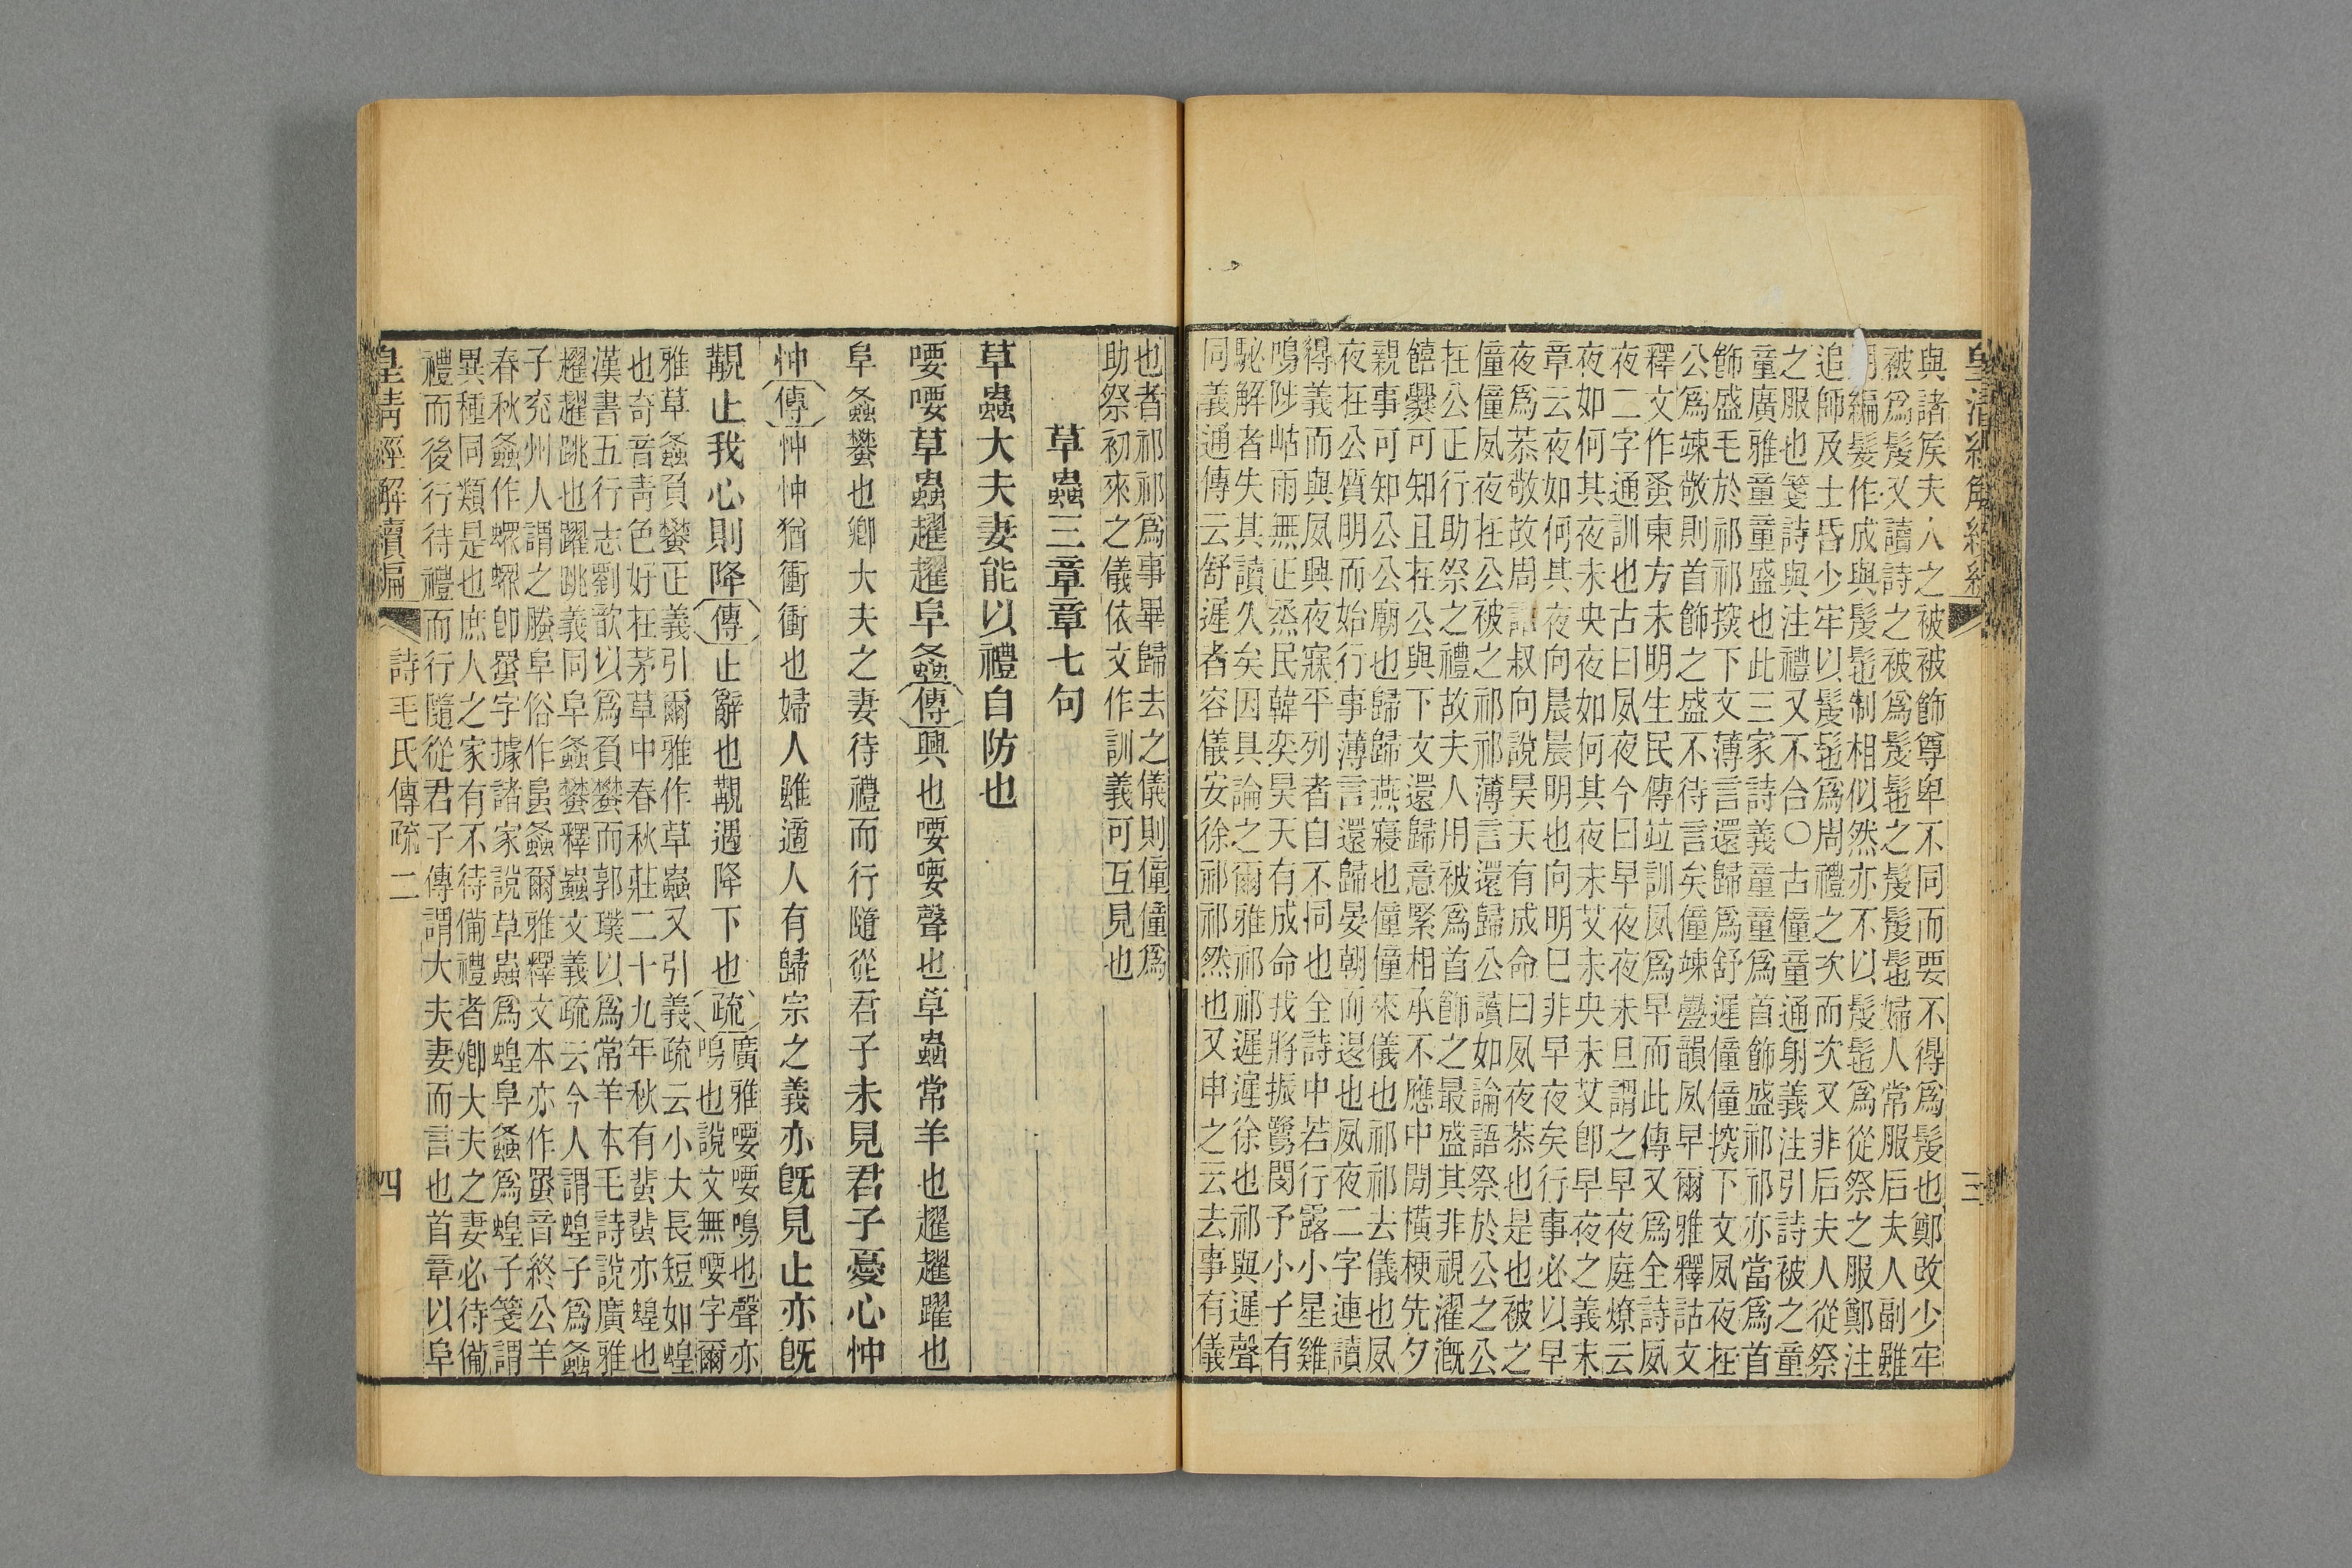 皇清經解續編
三
與諸矦夫人之被被飾尊卑不同而要不得爲髲也鄭改少牢
被爲髲又讀詩之被爲髲髢之髲髲髢婦人常服后夫人副雖
編髮作成與髲髢制相似然亦不以髲髢爲從祭之服鄭注
追師及士昏少牢以髲髢爲周禮之次而次又非后夫人從祭
之服也箋詩與注禮又不合○古僮童通射義注引詩被之童
童廣雅童童盛也此三家詩義童童爲首飾盛祁祁亦當爲首
飾盛毛於祁祁揬下文薄言還歸爲舒遲僮僮揬下文夙夜在
公爲竦敬則首飾之盛不待言矣僮竦疊韻夙早爾雅釋詁文
釋文作蚤東方未明生民傳竝訓夙爲早而此傳又爲全詩夙
夜二字通訓也古曰夙夜今曰早夜夜未旦謂之早夜庭燎云
夜如何其夜未央夜如何其夜未艾未央未艾卽早夜之義末
章云夜如何其夜向晨晨明也向明巳非早夜矣行事必以早
夜爲恭敬故周語叔向說昊天有成命曰夙夜恭也是也被之
僮僮夙夜在公被之祁祁薄言還歸公讀如論語祭於公之公
在公正行助祭之禮故夫人用被爲首飾之最盛其非視濯溉
饎爨可知且在公與下文還歸意緊相承不應中閒橫梗先夕
親事可知公公廟也歸歸燕寢也僮僮來儀也祁祁去儀也夙
夜在公質明而始行事薄言還歸晏朝而退也夙夜二字連讀
得義而與夙興夜寐平列者自不同也全詩中若行露小星雞
鳴陟岵雨無正烝民韓奕昊天有成命我將振鷺閔予小子有
駜解者失其讀久矣因具論之爾雅祁祁遲遲徐也祁與遲聲
同義通傳云舒遲者容儀安徐祁祁然也又申之云去事有儀
也者祁祁爲事畢歸去之儀則僮僮爲
助祭初來之儀依文作訓義可互見也
草蟲三章章七句
草蟲大夫妻能以禮自防也
喓喓草蟲趯趯阜螽傳興也喓喓聲也草蟲常羊也趯趯躍也
阜螽蠜也卿大夫之妻待禮而行隨從君子未見君子憂心忡
忡傳忡忡猶衝衝也婦人雖適人有歸宗之義亦旣見止亦旣
覯止我心則降傳止辭也覯遇降下也疏廣雅喓喓鳴也聲亦
鳴也說文無喓字爾
雅草螽負蠜正義引爾雅作草蟲又引義疏云小大長短如蝗
也奇音青色好在茅草中春秋莊二十九年秋有蜚蜚亦蝗也
漢書五行志劉歆以爲負蠜而郭璞以爲常羊本毛詩說廣雅
趯趯跳也躍跳義同阜螽蠜釋蟲文義疏云今人謂蝗子爲螽
子兖州人謂之螣阜俗作𧒂螽爾雅釋文本亦作蠜音終公羊
春秋螽作螺螺卽蠜字據諸家說草蟲爲蝗阜螽爲蝗子箋謂
異種同類是也庶人之家有不待備禮者卿大夫之妻必待備
禮而後行待禮而行隨從君子傳謂大夫妻而言也首章以阜
皇清經解續編
詩毛氏傳疏二
四